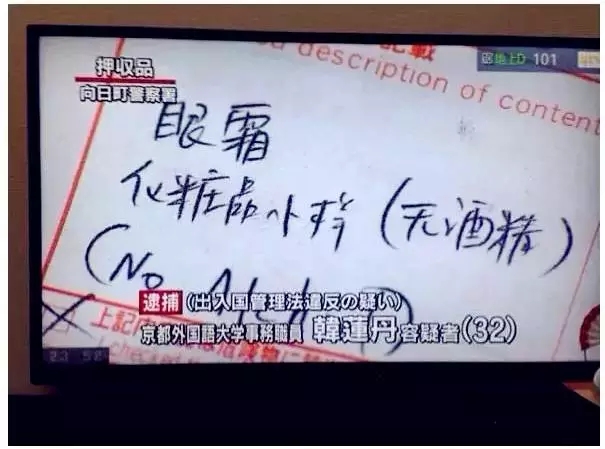 押収品
向日町警察署
記載
d description of content
地上D 101
眼霜
化粧品小样 (无酒精)
(No
逮捕 (出入国管理法違反の疑い)
京都外国語大学事務職員 韓蓮丹容疑者(32)
上記